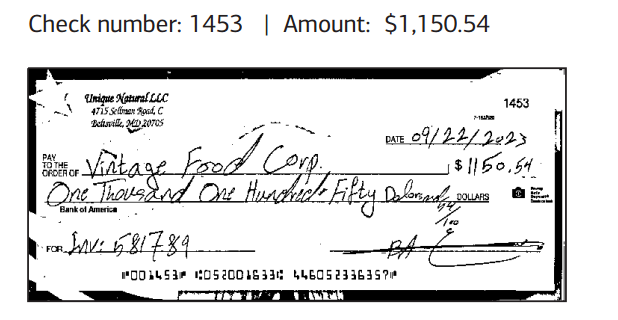 Check number: 1453 | Amount: $1,150.54
Unique Natural LLC
4715 Sellman Road, C
Beltsville, MD 20705
1453
DATE 09/22/2023
PAY TO THE ORDER OF Vintage Food Corp. $ 1150.54
One Thousand One Hundred Fifty DOLLARS
54/100
Bank of America
FOR Inv: 581789
⑈001453⑈ ⑆052001633⑆ 446052336357⑈